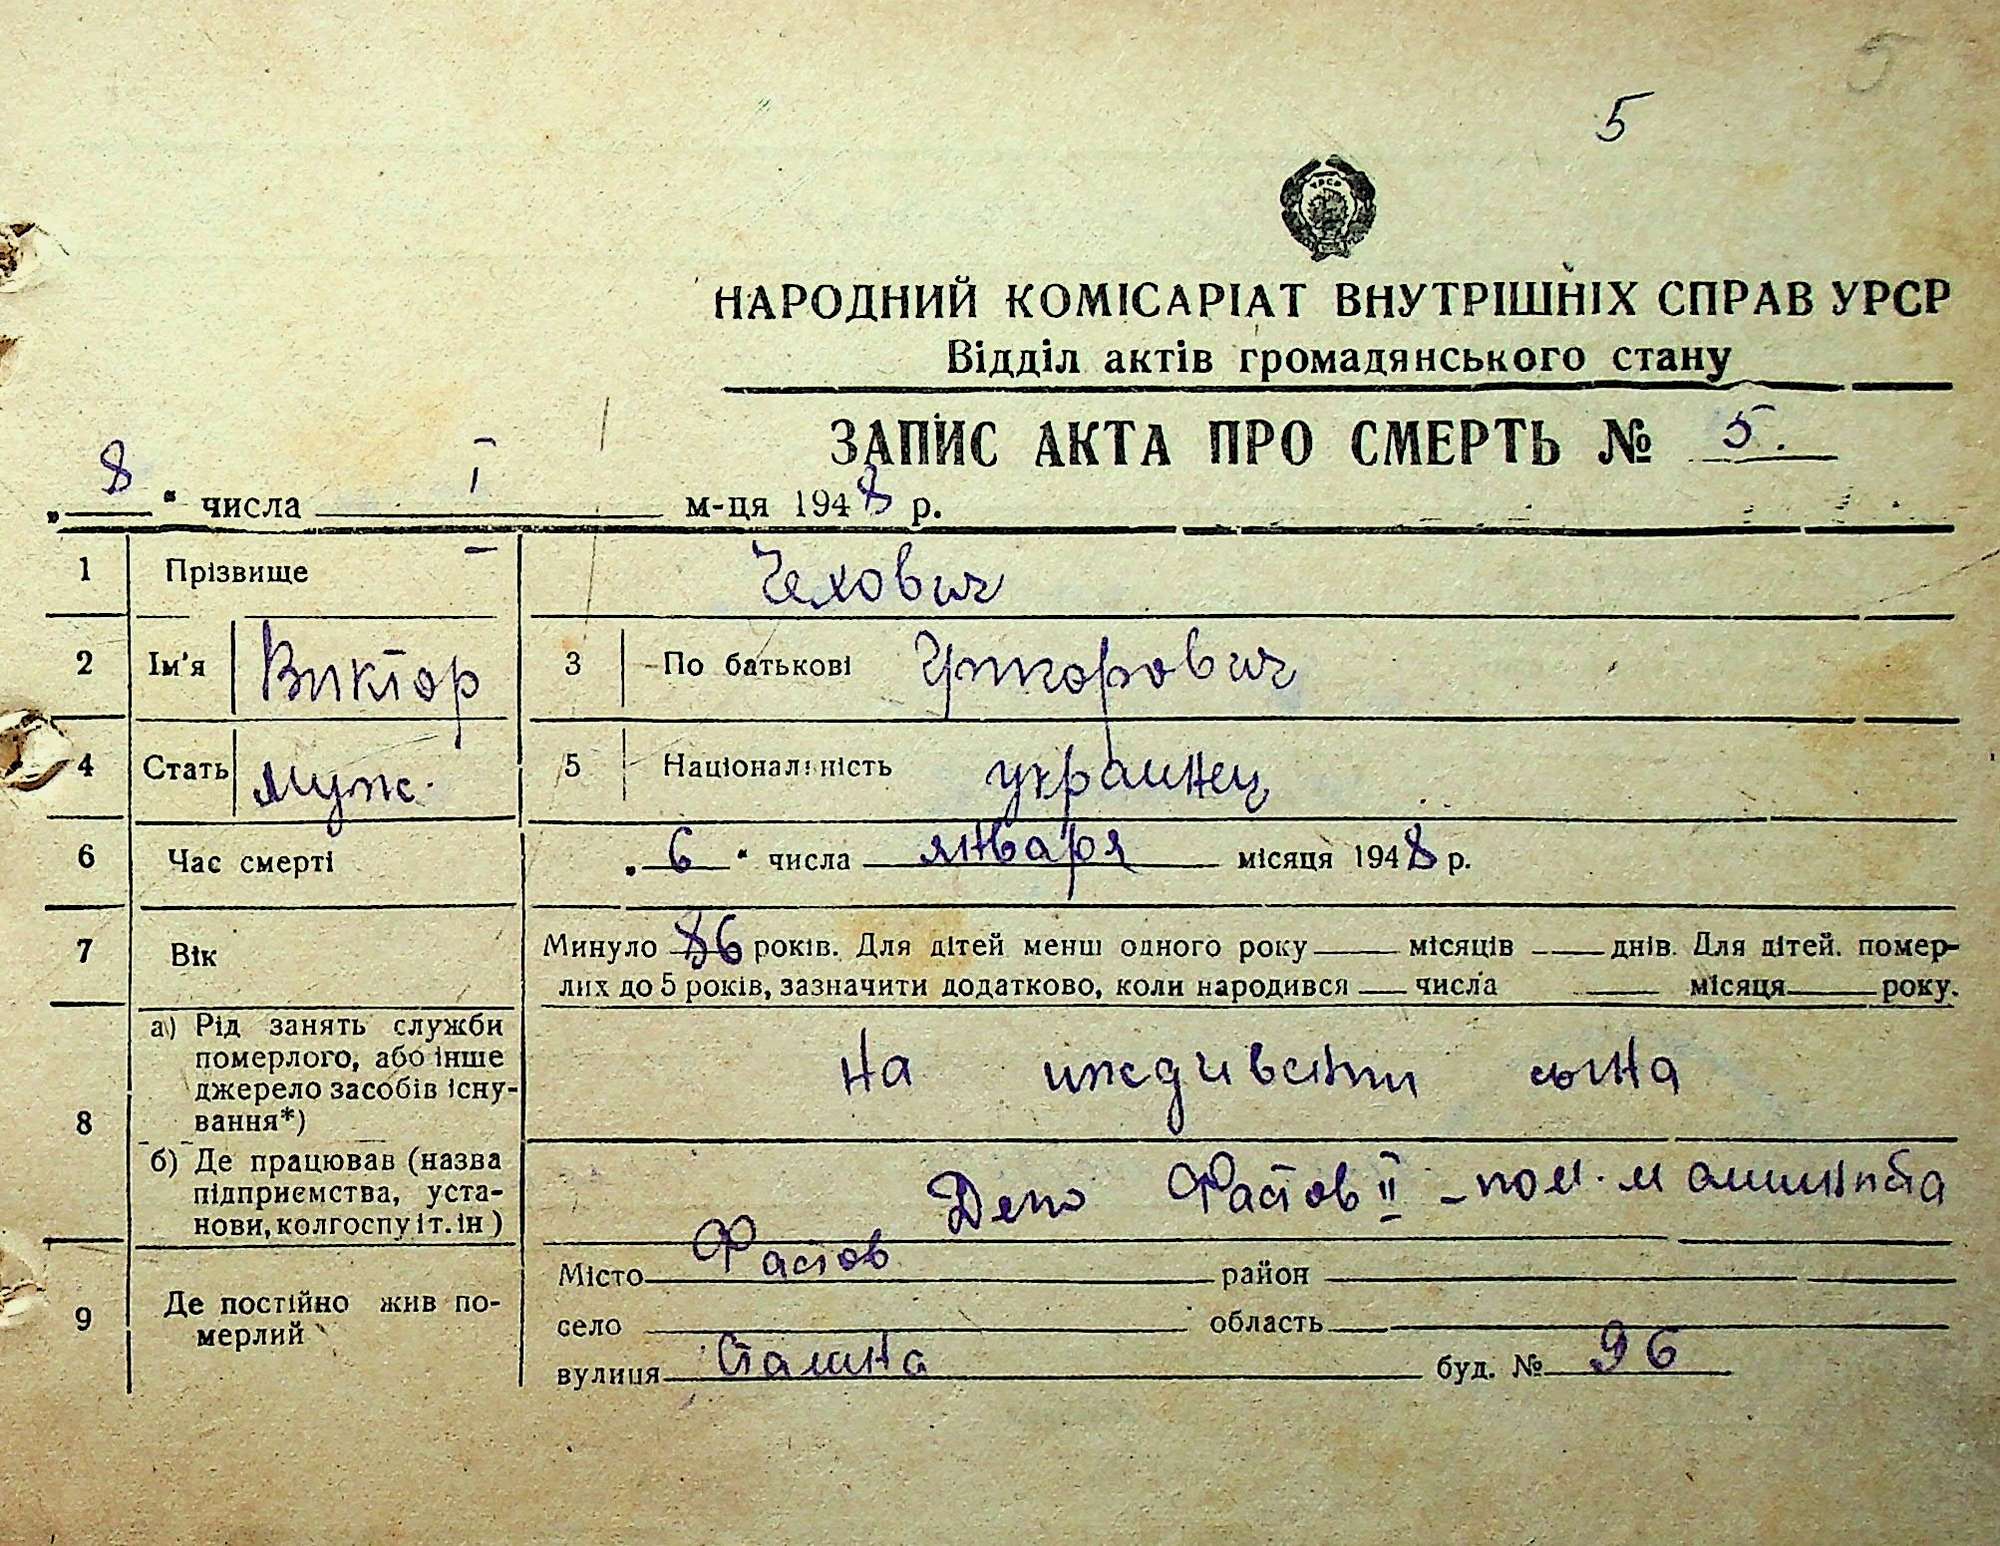 5
5
НАРОДНИЙ КОМІСАРІАТ ВНУТРІШНІХ СПРАВ УРСР
Відділ актів громадянського стану
ЗАПИС АКТА ПРО СМЕРТЬ № 5.
„8“ числа І м-ця 1948 р.
1 Прізвище Чехович
2 Ім'я Виктор 3 По батькові Григорович
4 Стать муж. 5 Національність украинец
6 Час смерті „6“ числа января місяця 1948 р.
7 Вік Минуло 86 років. Для дітей менш одного року місяців днів. Для дітей, помер-
лих до 5 років, зазначити додатково, коли народився числа місяця року.
8 а) Рід занять служби померлого, або інше джерело засобів існу-вання*) На иждивении сына
б) Де працював (назва підприємства, уста-нови, колгоспу і т. ін) Депо Фастов II - пом. машиниста
9 Де постійно жив по-мерлий Місто Фастов район
село область
вулиця Сталина буд. № 96